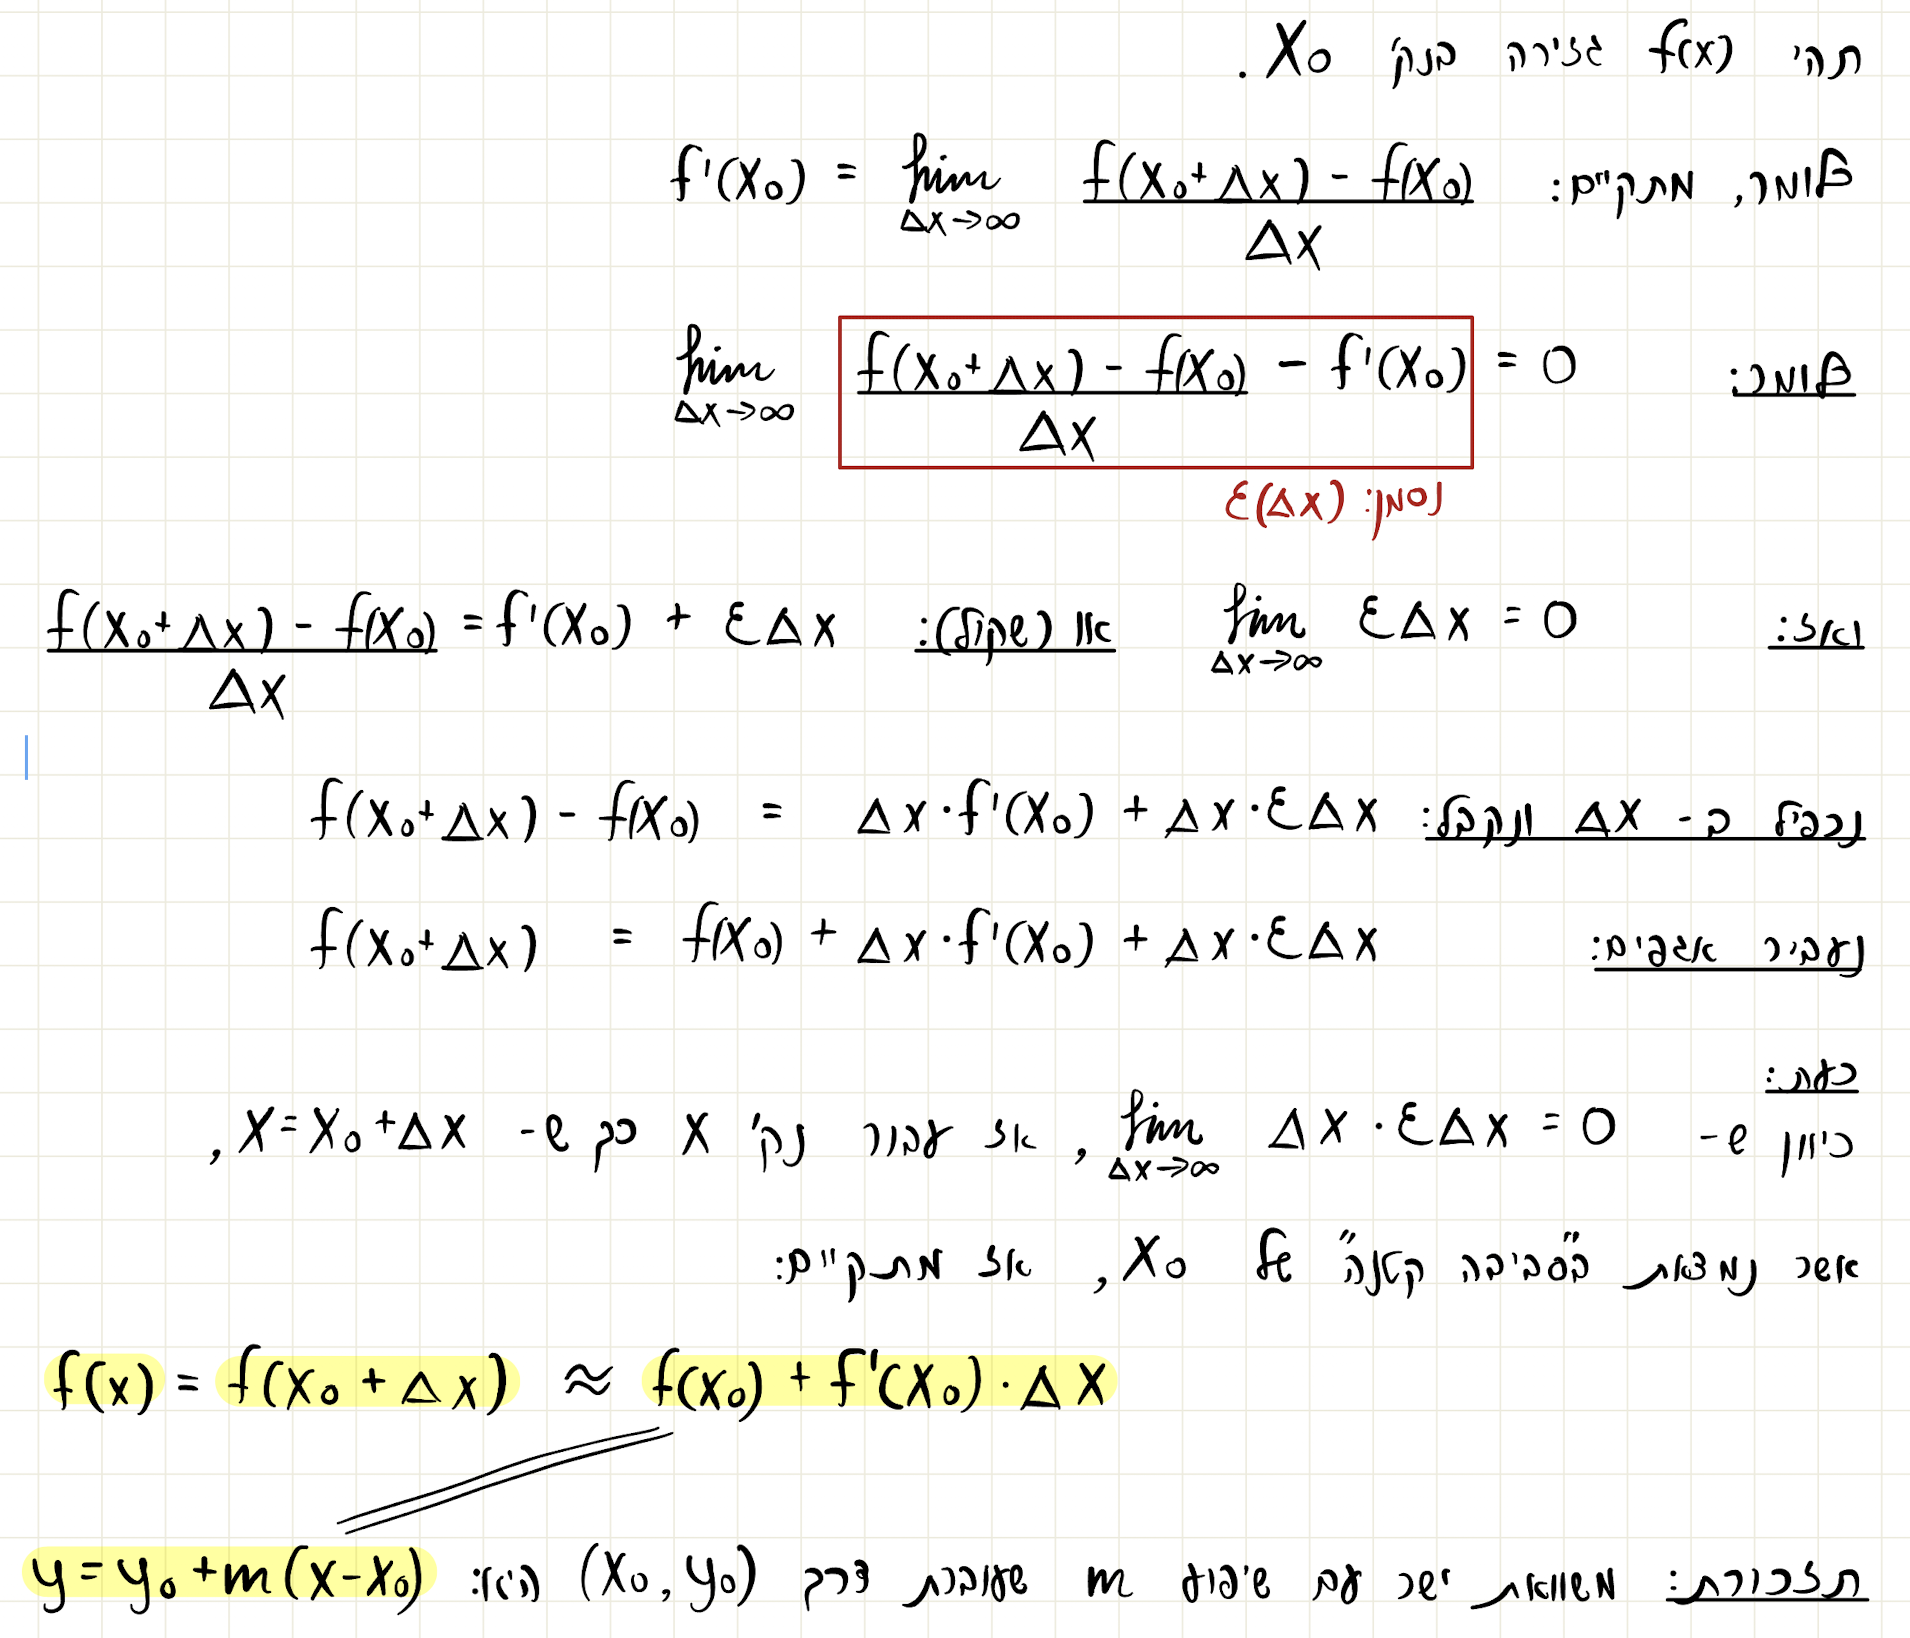 תהי f(x) גזירה בנק' X₀.
כלומר, מתקיים: f'(X₀) = lim Δx→∞ (f(X₀+Δx) - f(X₀)) / Δx
כלומר: lim Δx→∞ (f(X₀+Δx) - f(X₀)) / Δx - f'(X₀) = 0
נסמן: ε(Δx)
ואז: lim Δx→∞ εΔx = 0 או (שקול): (f(X₀+Δx) - f(X₀)) / Δx = f'(X₀) + εΔx
נכפיל ב- Δx ונקבל: f(X₀+Δx) - f(X₀) = Δx·f'(X₀) + Δx·εΔx
נעביר אגפים: f(X₀+Δx) = f(X₀) + Δx·f'(X₀) + Δx·εΔx
כעת:
כיוון ש- lim Δx→∞ Δx·εΔx = 0, אז עבור נק' X כך ש- X=X₀+Δx,
אשר נמצאת ב"סביבה קטנה" של X₀, אז מתקיים:
f(x) = f(X₀+Δx) ≈ f(X₀) + f'(X₀)·Δx
תזכורת: משוואת ישר עם שיפוע m שעוברת דרך (X₀,y₀) היא: y=y₀+m(x-X₀)